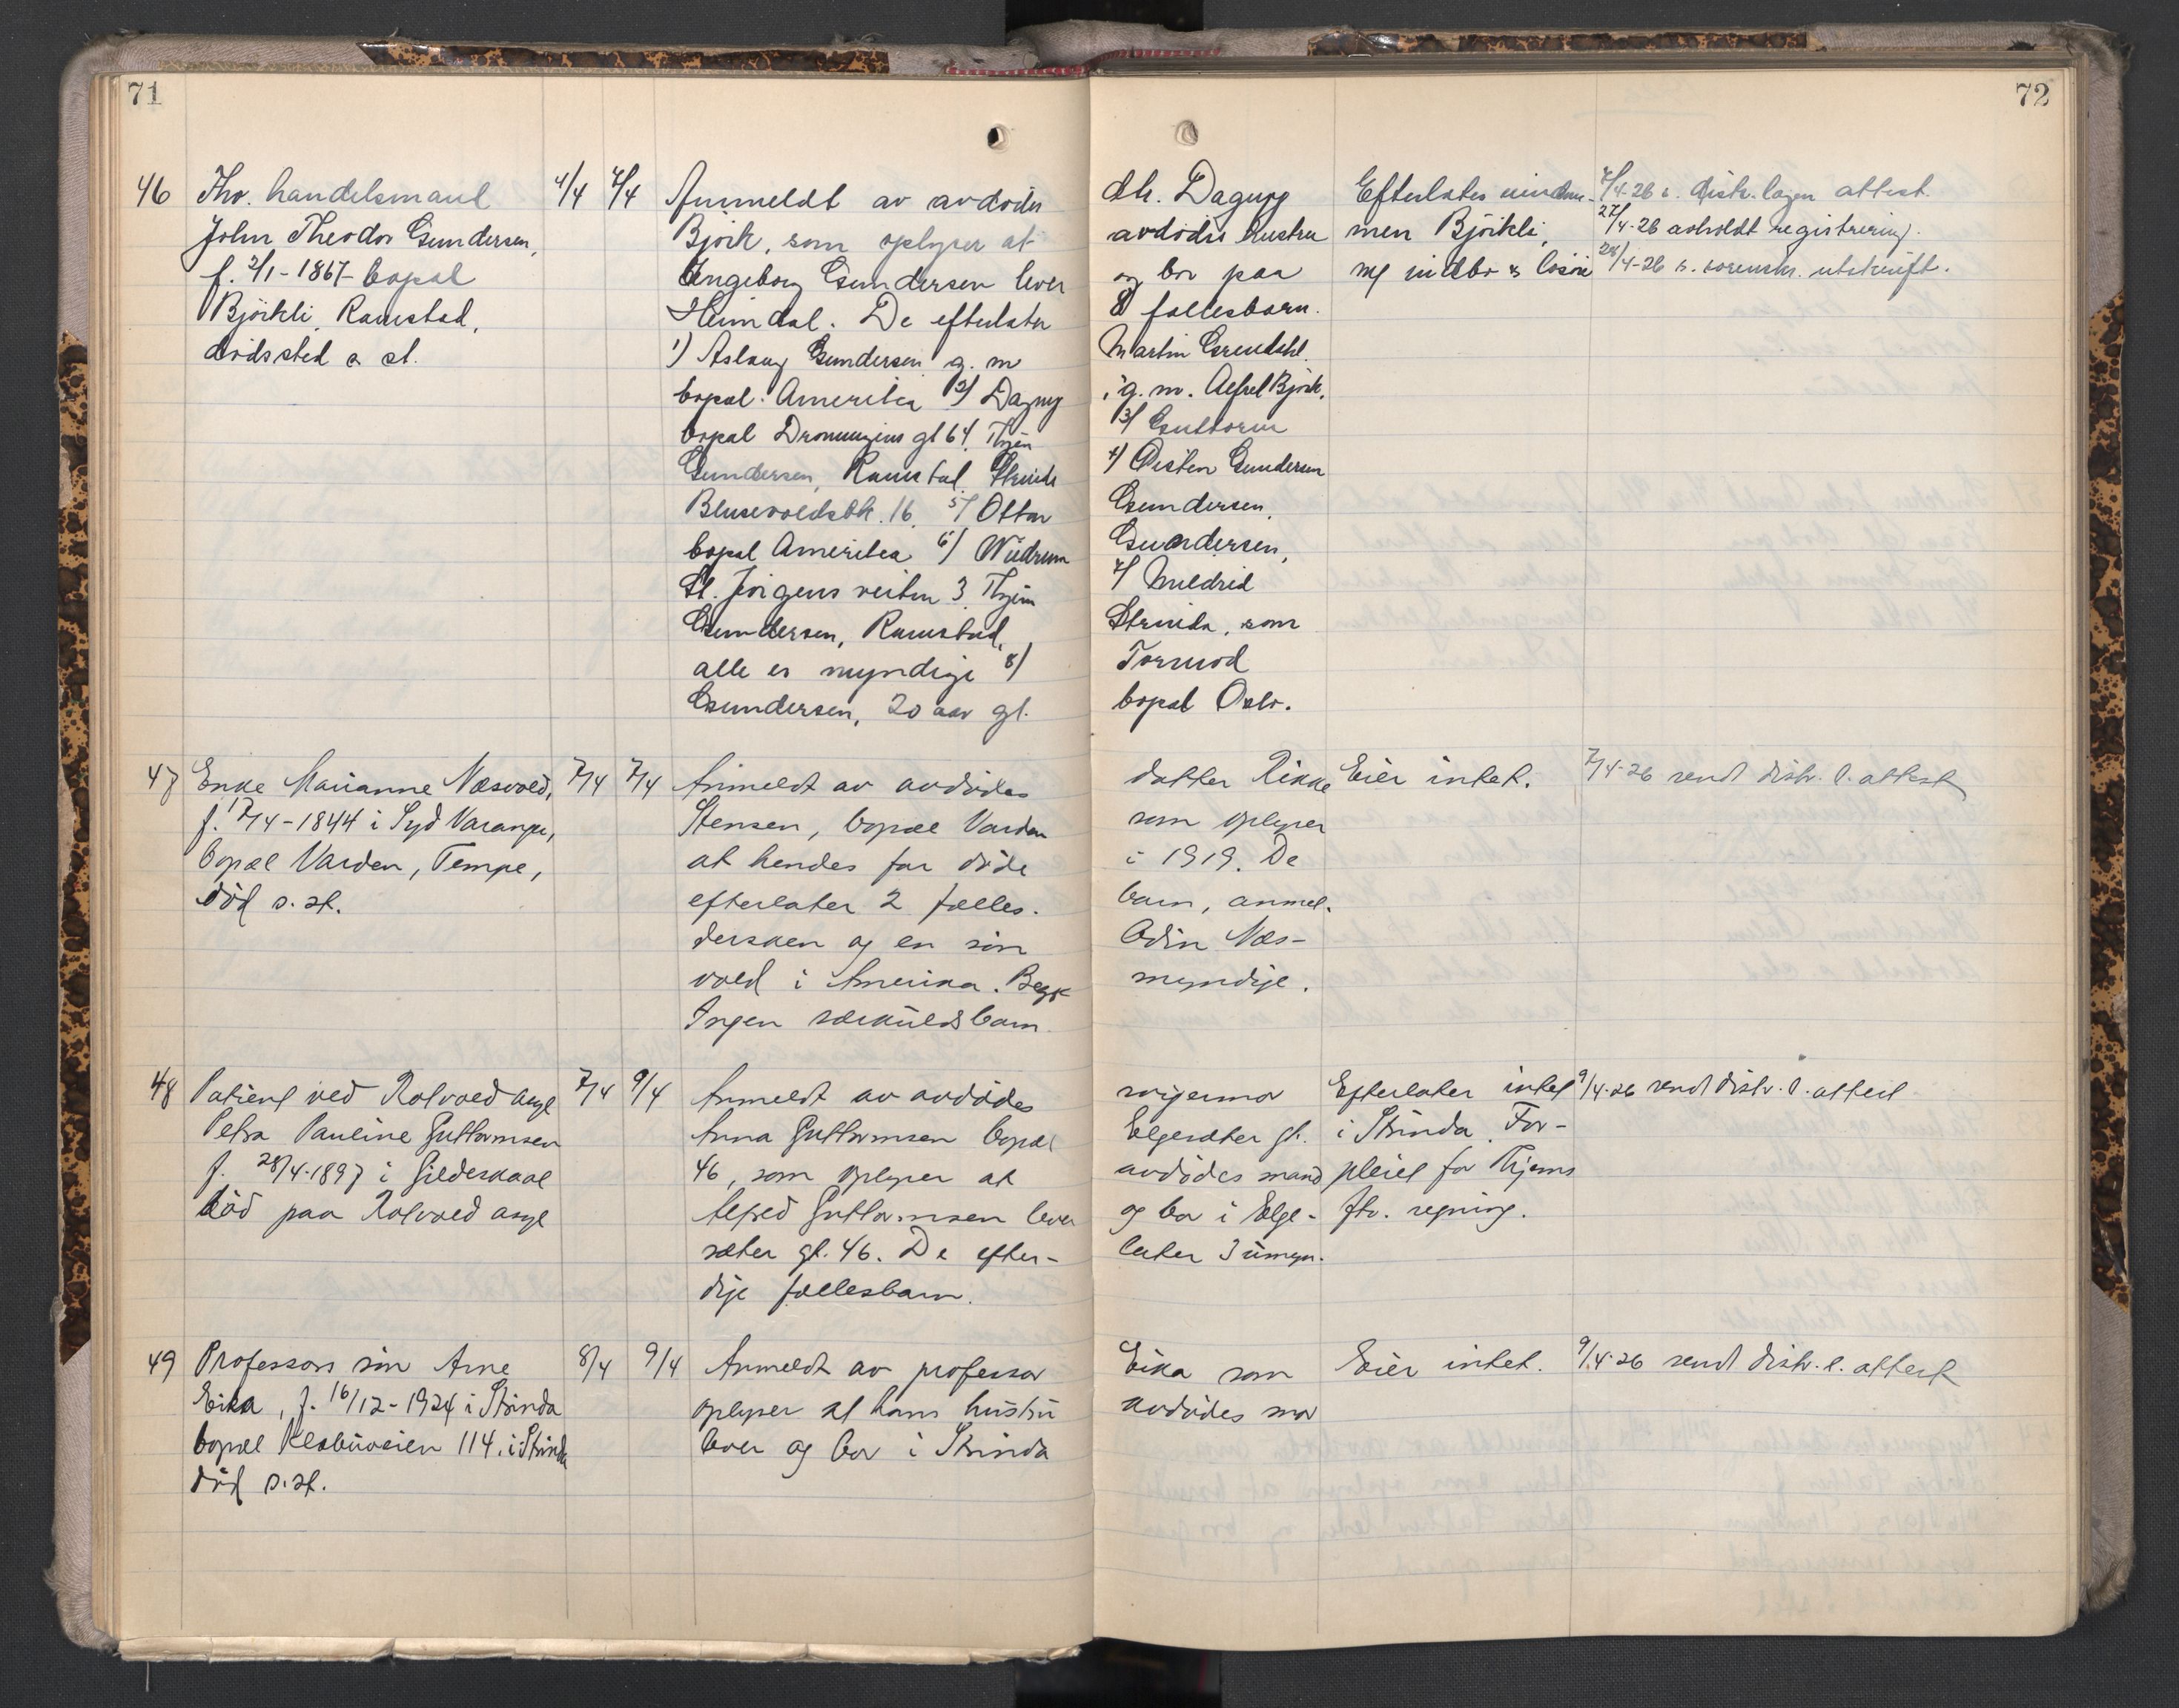 71
72
46 Fhv. handelsmand 4/4 7/4 Anmeldt av avdødes dtr. Dagny Efterlates eiendom- 7/4-26 s. distr. lagm attest.
John Theodor Gundersen, Björk, som oplyser at avdødes hustru men Björkli, 27/4-26 avholdt registrering.
f. 2/1-1867 bopæl Ingeborg Gundersen lever og bor paa og indbo & lösöre 28/4-26 s. sorenskr. utskrift.
Björkli, Ranstad, Heimdal. De efterlater 8 fællesbarn.
dödssted s. st. 1) Aslaug Gundersen g. m Martin Grendahl
bopæl Amerika 2) Dagny i g. m. Alfred Björk,
bopæl Dronningens gt 64 Thjem 3) Guttorm
Gundersen, Ranstad Strinda 4) Östen Gundersen
Blusevoldsbk. 16. 5) Ottar Gundersen,
bopæl Amerika 6) Gundersen,
St. Jörgens veiten 3 Thjem 7) Mildrid
Gundersen, Ranstad, Strinda, som
alle er myndige 8) Tormod
Gundersen, 20 aar gl. bopæl Oslo.
47 Enke Marianne Næsvold, 7/4 7/4 Anmeldt av avdødes datter Rikke Eier intet. 7/4-26 sendt distr. l. attest
f. 17/4-1844 i Syd Varanger, Stensen, bopæl Varden som oplyser
bopæl Varden, Tempe, at hendes far døde i 1919. De
död s. st. efterlater 2 fælles- barn, anmel-
dersken og en sön Odin Næs-
vold i Amerika. Begge myndige.
Ingen særkuldsbarn
48 Patient ved Rotvold asyl 7/4 9/4 Anmeldt av avdödes svigermor Efterlater intet 9/4-26 sendt distr. l. attest
Petra Pauline Guttormsen Anna Guttormsen bopæl Elgesæter gt. i Strinda. For-
f. 28/4-1897 i Gildeskaal 46, som oplyser at avdödes mand pleiet for Thjems
död paa Rotvold asyl Alfred Guttormsen lever og bor i Elge- ftv. regning.
sæter gt. 46. De efter- later 3 umyn-
dige fællesbarn.
49 Professors sön Arne 8/4 9/4 Anmeldt av professor Eika som Eier intet. 9/4-26 sendt distr. l. attest
Eika, f. 16/12-1924 i Strinda oplyser at hans hustru avdödes mor
bopæl Klæbuveien 114. i Strinda lever og bor i Strinda
död s. st.